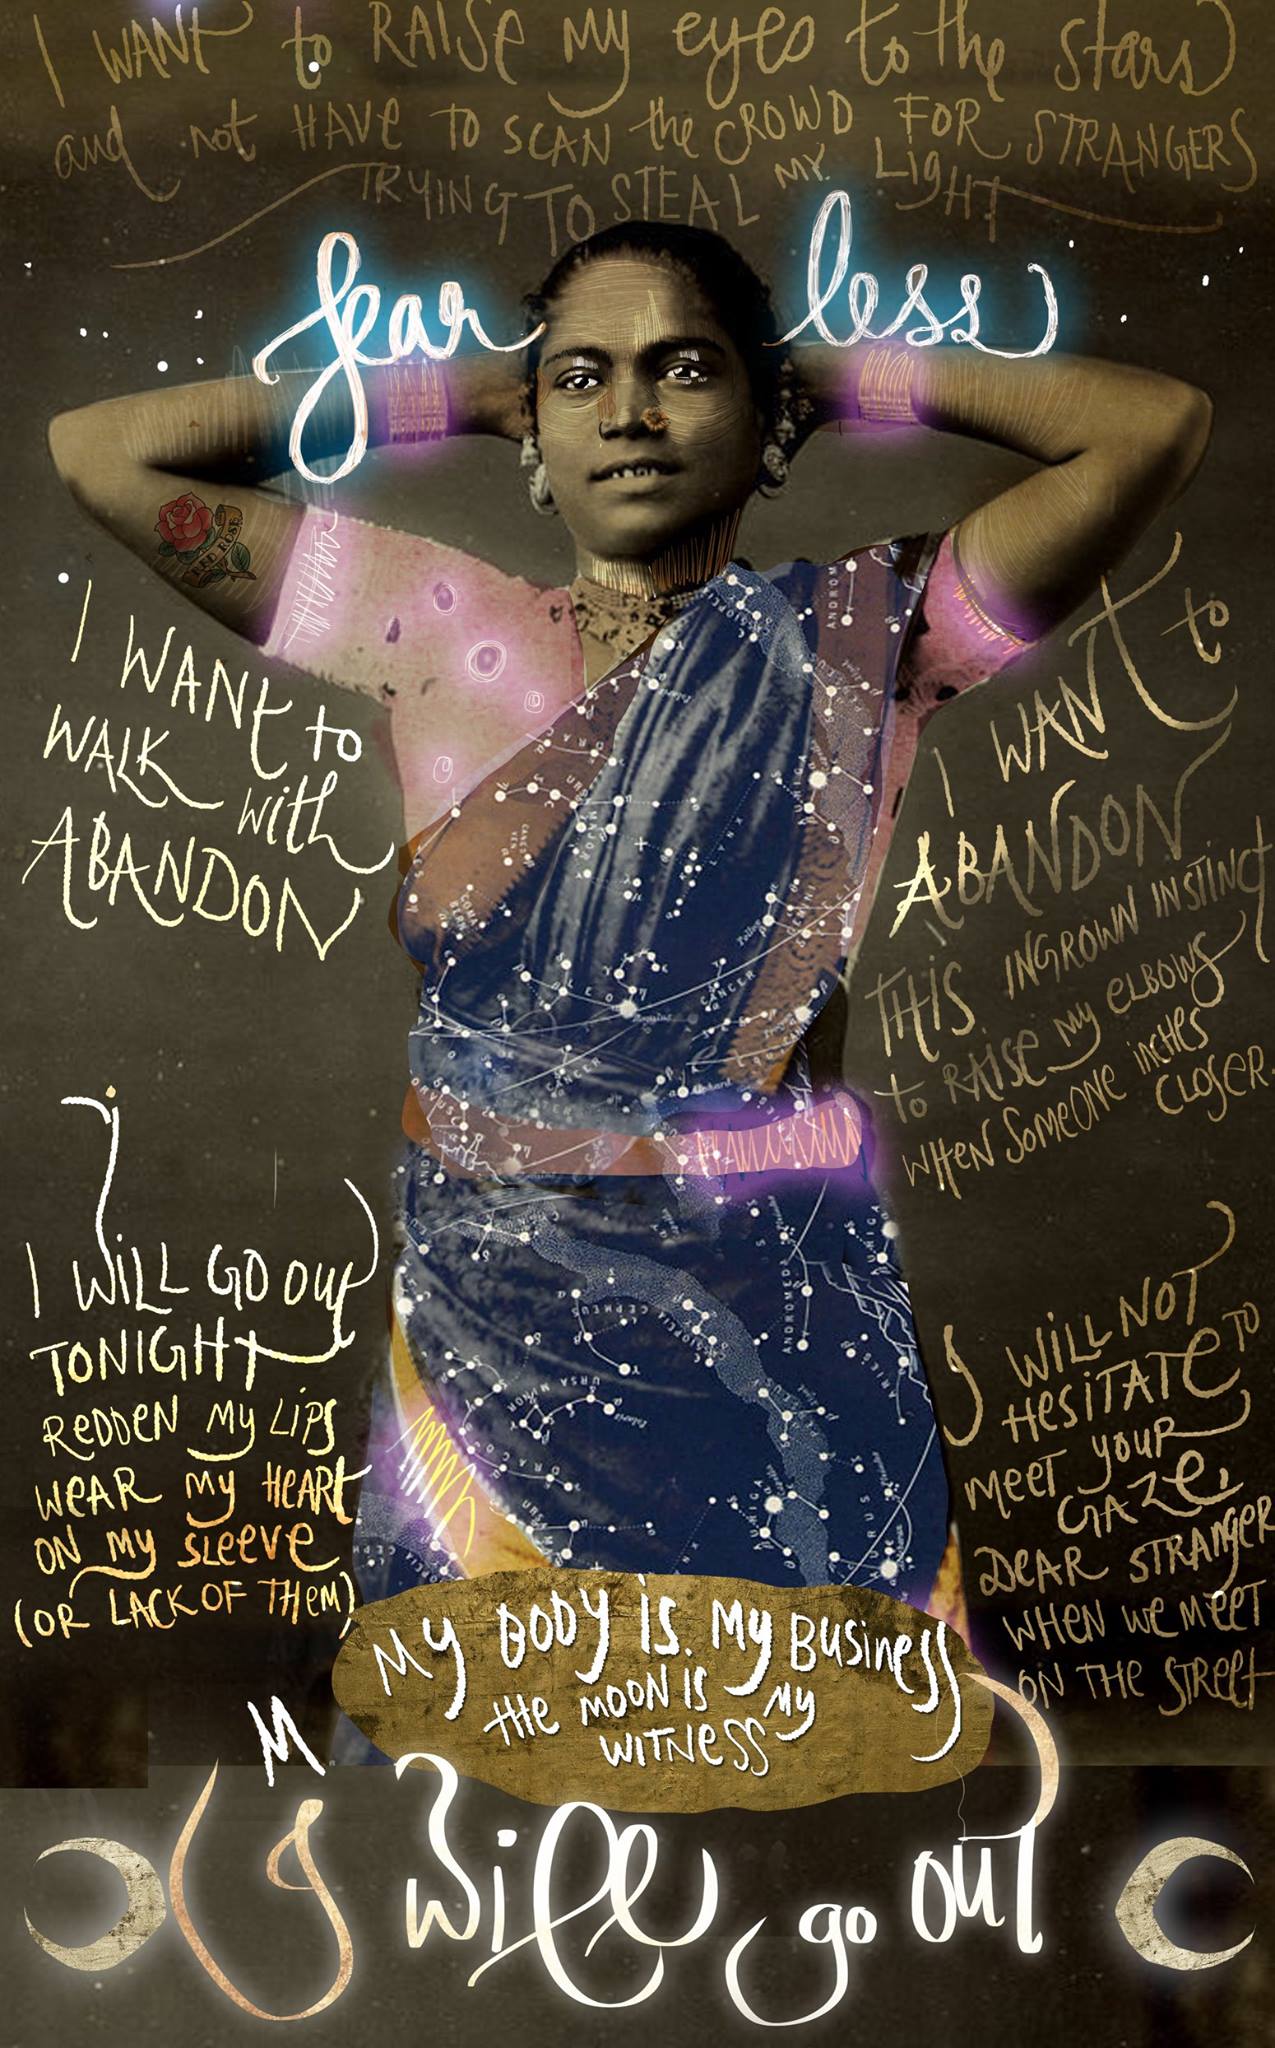 I WANT to RAISE my eyes to the stars
and not HAVE TO SCAN the CROWD FOR STRANGERS
TRYING TO STEAL MY LIGHT
fear less
RED ROSE
I WANT to
WALK with
ABANDON
I WANT to
ABANDON
THIS INGROWN INSTINCT
to RAISE my ELBOWS
WHEN SOMEONE inches
CLOSER.
I WILL GO OUT
TONIGHT
REDDEN MY LIPS
WEAR MY HEART
ON MY SLEEVE
(OR LACK OF THEM)
I WILL NOT
HESITATE TO
MEET YOUR
GAZE,
DEAR STRANGER
WHEN WE MEET
ON THE STREET
ANDROM
LYNX
CANCER
LEO
CANCER
ANDROMEDA
AURIGA
CEPHEUS
URSA MINOR
DRACO
AURIGA
TAURUS
MY BODY is my BUSINESS
the MOON IS MY
WITNESS
I Will go out